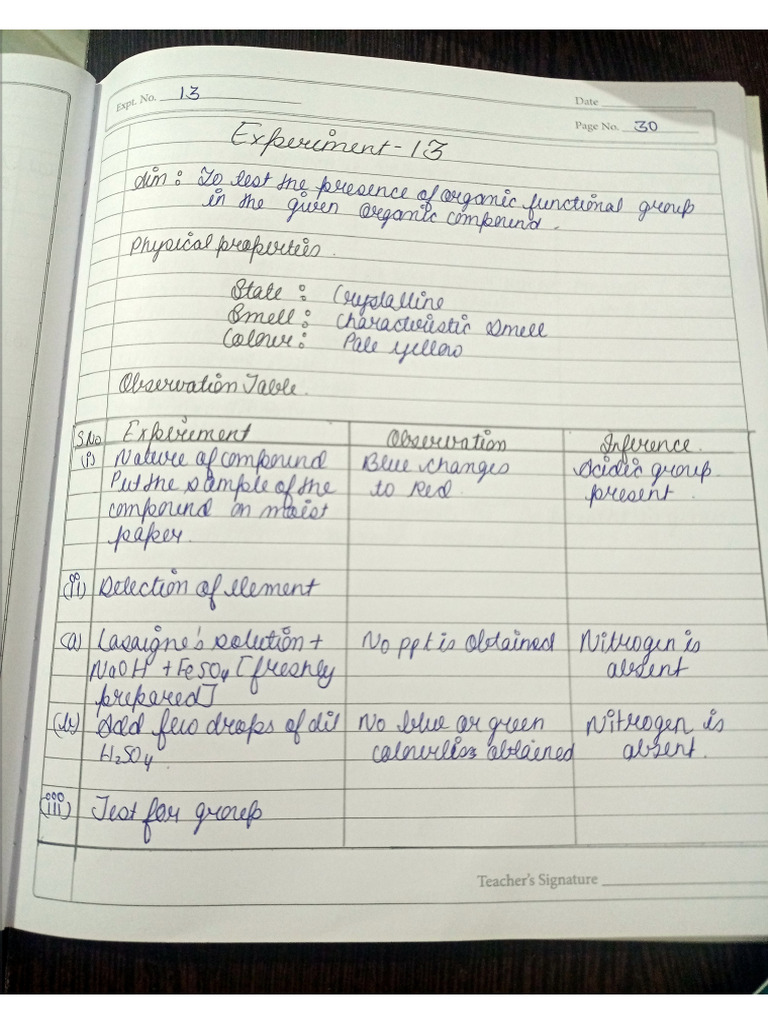 Expt. No. 13
Date
Page No. 30
Experiment - 13
Aim : To test the presence of organic functional group
in the given organic compound.
Physical properties.
State : Crystalline
Smell : Characteristic smell
Colour : Pale yellow
Observation Table.
S.No Experiment Observation Inference.
(i) Nature of compound Blue changes Acidic group
Put the sample of the to red. present.
compound on moist
paper.
(ii) Detection of element
(a) Lasaigne's solution + No ppt is obtained Nitrogen is
NaOH + FeSO4 [freshly absent
prepared]
(b) Add few drops of dil No blue or green Nitrogen is
H2SO4. colour is obtained absent.
(iii) Test for group
Teacher's Signature